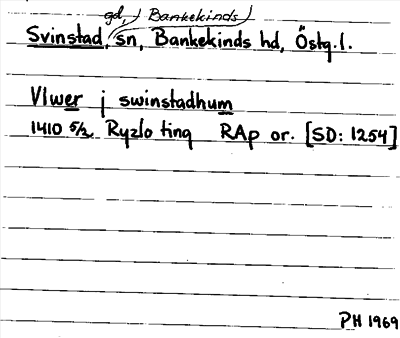 gd, (Bankekinds)
Svinstad, sn, Bankekinds hd, Östg.l.
Vlwer j swinstadhum
1410 5/2 Ryzlo ting RAp or. [SD: 1254]
PH 1969